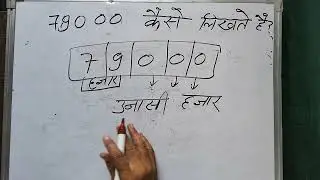 79000 कैसे लिखते हैं?
7 9 0 0 0
हजार
उनासी हजार